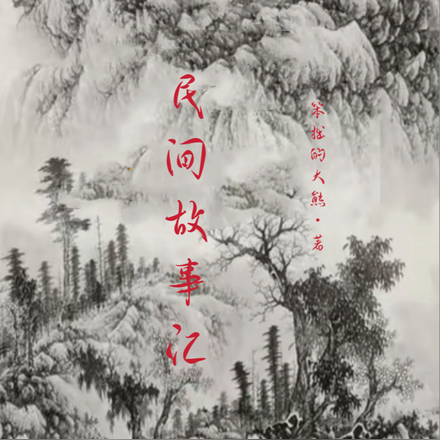 民间故事汇
笨拙的大熊·著